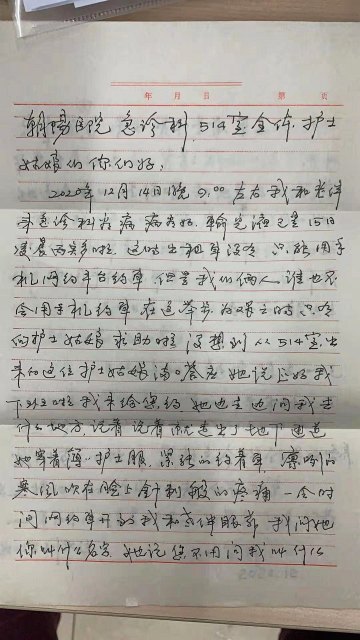 年 月 日 第 页
朝陽医院 急诊科 514室全体 护士
姑娘们你们好:
2020年12月14日晚9:00左右我和老伴
来急诊科看病 病看好 输完液已是15日
凌晨两点多啦 这时出租车没有 只能用手
机网约平台约车 但是我们俩人谁也不
会用手机约车 在这举步为艰之时 只有
向护士姑娘求助啦 没想到从514室出
来的这位护士姑娘满口答应 她说正好我
下班啦 我来给您约 她边走边问我去
什么地方 说着说着就走出了地下通道
她穿着薄护士服 累张的约着车 凛冽的
寒风吹在脸上针刺般的疼痛 一会时
间网约车开到我和老伴眼前 我问她
你叫什么名字 她说您不用问我叫什么